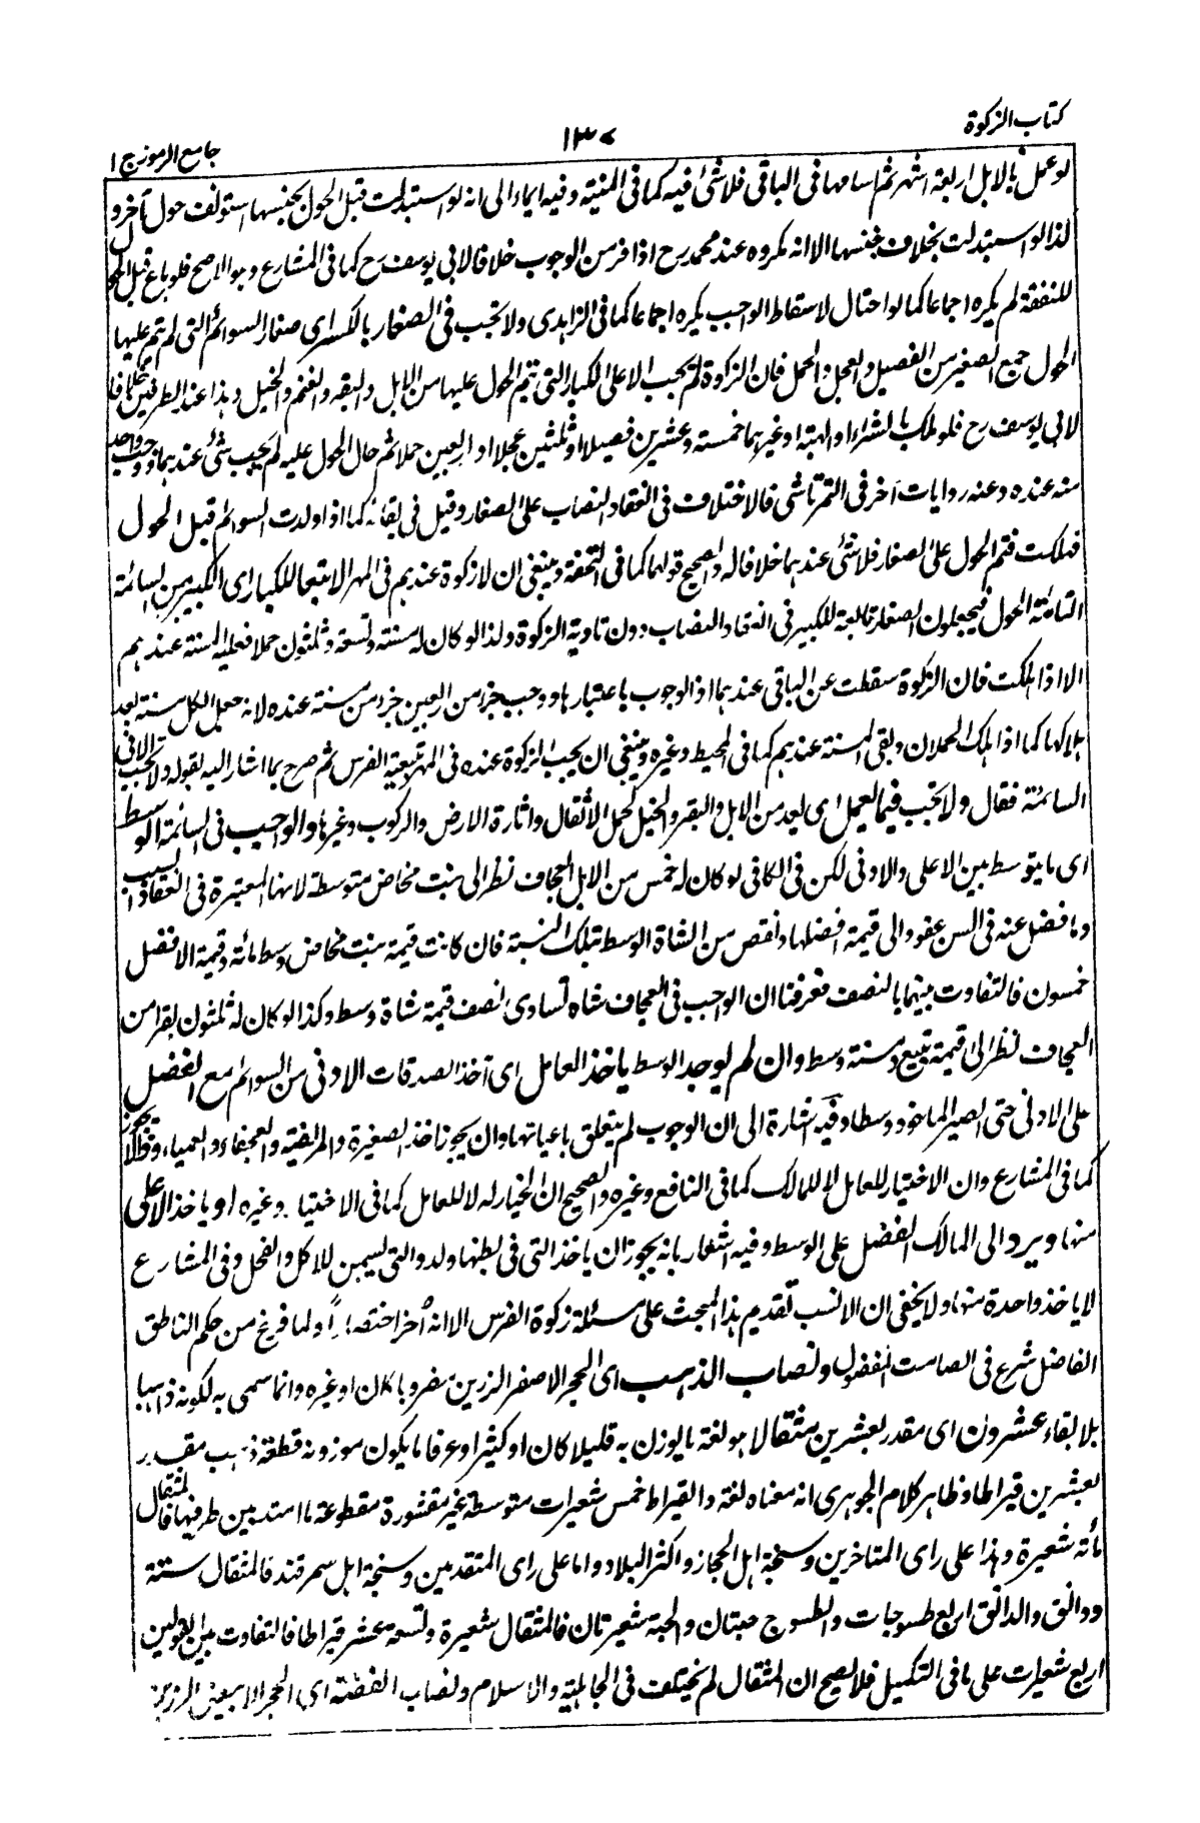 كتاب الزكوة
١٣٧
جامع الرموز ج ١
لو عمل بالابل اربعة اشهر ثم اسامها فى الباقى فلا شئ فيه كما فى المنية وفيه ايماء الى انه لو استبدلت قبل الحول بجنسها استونف حول آخر و
لذا لو استبدلت بخلاف جنسها الا انه مكروه عند محمد رح اذا فر من الوجوب خلافا لابى يوسف رح كما فى المشارع وهو الاصح فلو باع قبل الحول
للنفقة لم يكره اجماعا كما لو احتال لاسقاط الواجب يكره اجماعا كما فى الزاهدى ولا تجب فى الصغار بالكسر اى صغار السوائم التى لم يتم عليها
الحول جمع الصغير من الفصيل والعجل والحمل فان الزكوة لم تجب الا على الكبار التى تم الحول عليها من الابل والبقر والغنم والخيل وهذا عند الطرفين خلافا
لابى يوسف رح فلو ملك بالشراء او الهبة او غيرهما خمسة وعشرين فصيلا او ثلثين عجلا او اربعين حملا ثم حال الحول عليه لم يجب شئ عندهما ووجب واحد
منه عنده وعنه روايات اخر فى التمرتاشى فالاختلاف فى انعقاد النصاب على الصغار وقيل فى بقائه كما اذا ولدت السوائم قبل الحول
فهلكت فتم الحول على الصغار فلا شئ عندهما خلافا له والصحيح قولهما كما فى التحفة وينبغى ان لا زكوة عندهم فى المهر الا تبعا للكبار اى الكبير من السائمة
التامة الحول فيجعلون الصغار تابعة للكبير فى انعقاد النصاب دون تادية الزكوة ولذا لو كان له مسنة وتسعة وثلثون حملا فعليه المسنة عندهم
الا اذا هلكت فان الزكوة سقطت عن الباقى عندهما اذ الوجوب باعتبارها ووجب جزء من اربعين جزء من مسنة عنده لانه جعل الكل مسنة بعد
هلاكها كما اذا هلك الحملان وبقى المسنة عندهم كما فى المحيط وغيره وينبغى ان يجب الزكوة عنده فى المهر تبعية الفرس ثم صرح بما اشار اليه بقوله ولا تجب الا فى
السائمة فقال ولا تجب فيما يعمل اى يعد من الابل والبقر والخيل لحمل الاثقال واثارة الارض والركوب وغيرها والواجب فى السائمة الوسط
اى ما يتوسط بين الاعلى والادنى لكن فى الكافى لو كان له خمس من الابل العجاف نظر الى بنت مخاض متوسطة لانها المعتبرة فى انعقاد السبب
وما فضل عنه فى السن عفو والى قيمة افضلها ونقص من الشاة الوسط بتلك النسبة فان كانت قيمة بنت مخاض وسط مائة وقيمة الافضل
خمسون فالتفاوت بينهما بالنصف فعرفنا ان الواجب فى العجاف شاة تساوى نصف قيمة شاة وسط وكذا لو كان له ثلثون بقرا من
العجاف نظر الى قيمة تبيع ومسنة وسط وان لم يوجد الوسط ياخذ العامل اى آخذ الصدقات الادنى من السوائم مع الفضل
على الادنى حتى يصير الماخوذ وسطا وفيه اشارة الى ان الوجوب لم يتعلق باعيانها وان يجوز اخذ الصغيرة والمريضة والعجفاء والعمياء
كما فى المشارع وان الاختيار للعامل لا للمالك كما فى النافع وغيره والصحيح ان الخيار له لا للعامل كما فى الاختيار وغيره او ياخذ الاعلى
منها ويرد الى المالك الفضل على الوسط وفيه اشعار بانه يجوز ان ياخذ التى فى بطنها ولد والتى يسمن للاكل والفحل وفى المشارع
لا ياخذ واحدة منها ولا يخفى ان الانسب تقديم هذا المبحث على مسئلة زكوة الفرس الا انه أخر اختصارا ولما فرغ من حكم الناطق
الفاضل شرع فى الصامت المفضول ونصاب الذهب اى الحجر الاصفر الرزين مضروبا كان او غيره وانما سمى به لكونه ذاهبا
بلا بقاء عشرون اى مقدر بعشرين مثقالا هو لغة ما يوزن به قليلا كان او كثيرا وعرفا ما يكون موزونه قطعة ذهب مقدر
بعشرين قيراطا وظاهر كلام الجوهرى انه معناه لغة والقيراط خمس شعيرات متوسطة غير مقشورة مقطوعة ما امتد بين طرفيها فالمثقال
مأته شعيرة وهذا على راى المتاخرين وسنجة اهل الحجاز واكثر البلاد واما على راى المتقدمين وسنجة اهل سمرقند فالمثقال ستة
دوانق والدانق اربع طسوجات والطسوج حبتان والحبة شعيرتان فالمثقال شعيرة وتسعة عشر قيراطا فالتفاوت بين القولين
اربع شعيرات على ما فى التكميل فلا يصح ان المثقال لم يختلف فى الجاهلية والاسلام ونصاب الفضة اى الحجر الابيض الرزين